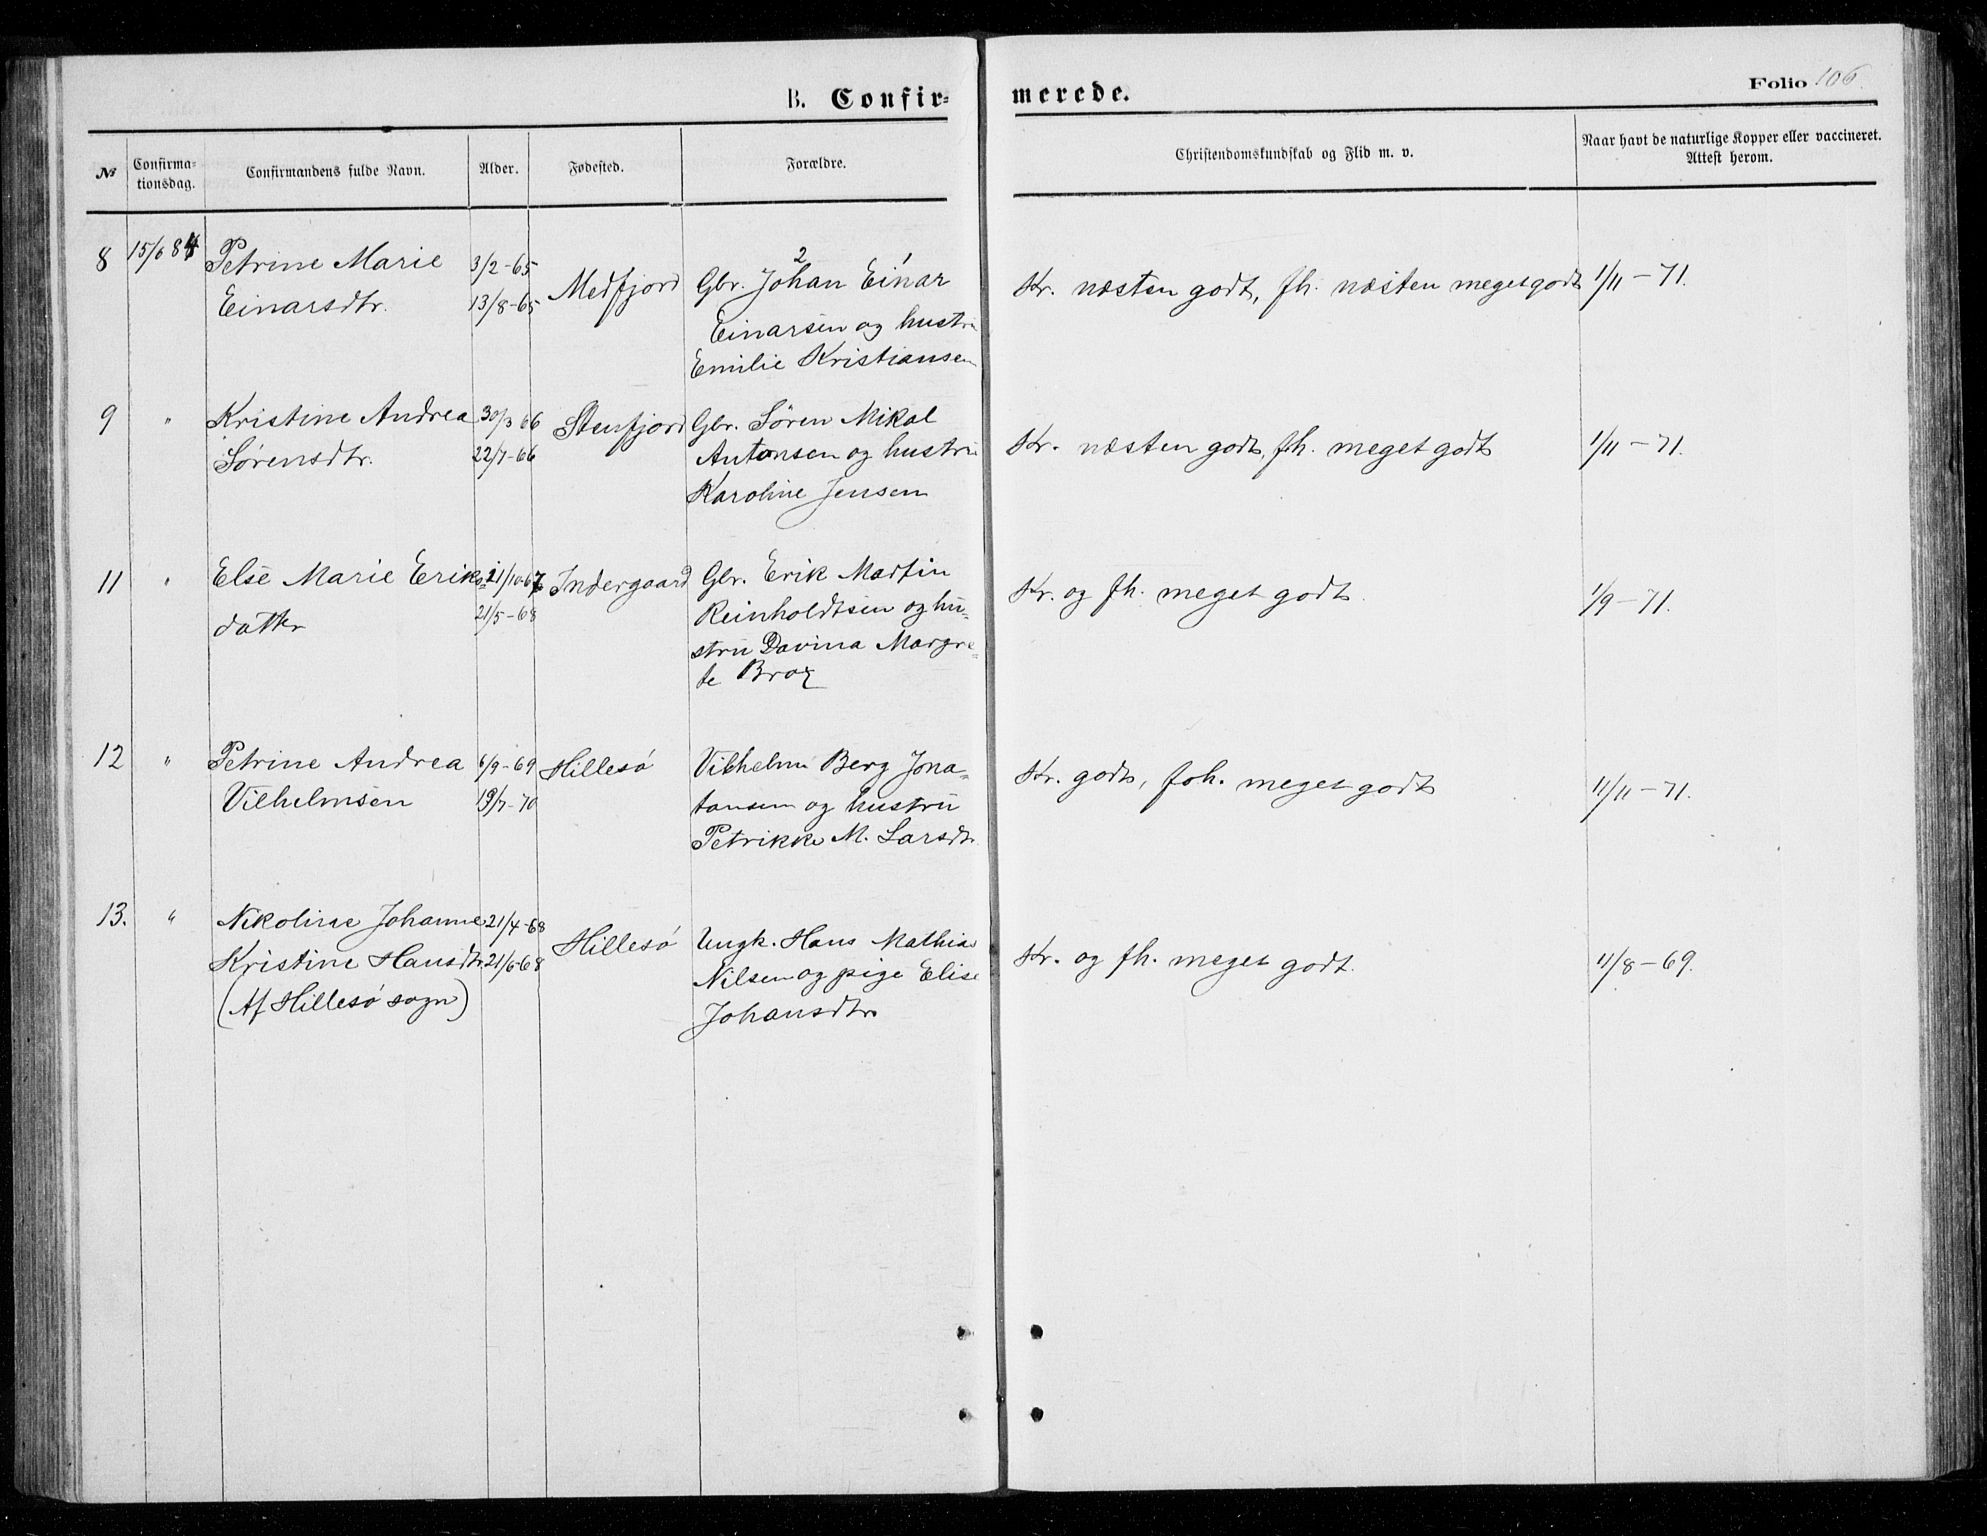 B. Confir-
merede.
Folio 106.
№
Confirma-
tionsdag.
Confirmandens fulde Navn.
Alder.
Fødested.
Forældre.
Christendomskundskab og Flid m. v.
Naar havt de naturlige Kopper eller vaccineret.
Attest herom.
8 15/6 84 Petrine Marie
Einarsdtr.
3/2-65
13/8-65
Medfjord
2 1
Gbr. Johan Einar
Einarsen og hustru
Emilie Kristiansen
Kr. næsten godt, fh. næsten meget godt
1/11-71.
9 " Kristine Andrea
Sørensdtr.
30/3 66
22/7-66
Stenfjord
Gbr. Søren Mikal
Antonsen og hustru
Karoline Jensen
Kr. næsten godt, fh. meget godt
1/11-71.
11 " Else Marie Eriks-
datter
21/10-67
21/5-68
Indergaard
Gbr. Erik Martin
Reinholdtsen og hu-
stru Davina Margre-
te Brox
Kr. og fh. meget godt.
1/9-71.
12 " Petrine Andrea
Vilhelmsen
6/9-69
19/7-70
Hillesø
Vilhelm Berg Jona-
tansen og hustru
Petrikke M. Larsdtr
Kr. godt, foh. meget godt
11/11-71.
13. " Nikoline Johanne
Kristine Hansdtr.
(Af Hillesø sogn)
21/4-68
21/6-68
Hillesø
Ungk. Hans Mathias
Nilsen og pige Elise
Johansdtr.
Kr. og fh. meget godt.
11/8-69.